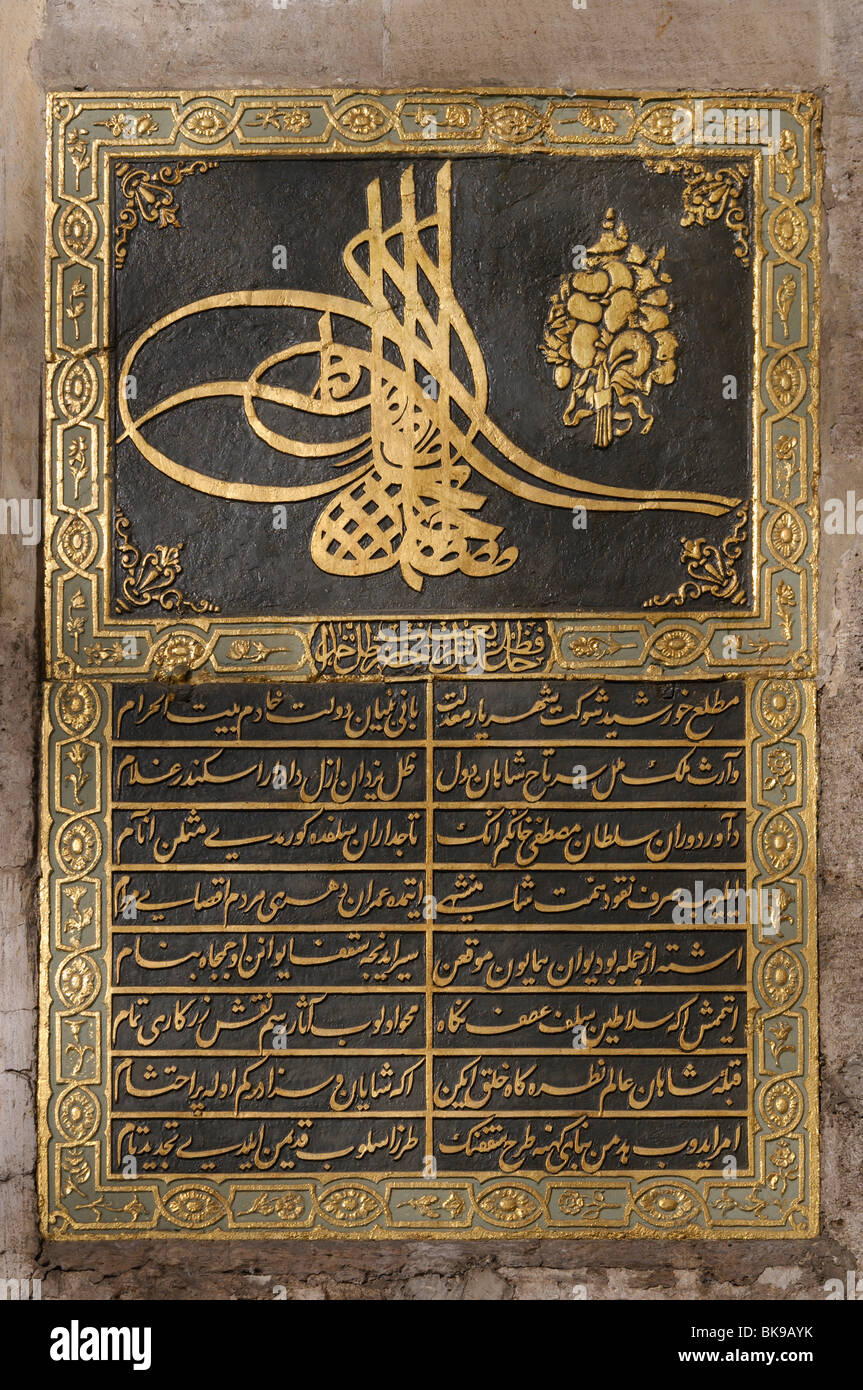 مطلع خورشید شوکت شهریار معدلت بانئ بنیان دولت خادم بیت الحرام
وارث ملک ملل سر تاج شاهان دول ظل یزدان ازل دارا اسکندر غلام
داور دوران سلطان مصطفی خانکم انک تاجداران سلفده کورمدی مثلن انام
ایلیوب صرف نقود همت شاهنشهی ایتمده عمران دهری مردم اقصای مرام
اشته از جمله بو دیوان همایون موقعن سیر ایدنجه سقف ایوانن او جمجاه بنام
ایتمش اکه سلاطین سلف عطف نکاه محو اولوب آثار رسم نقش زرکاری تمام
قبلهٔ شاهان عالم نظره کاه خلق ایکن اکه شایان و سزادرکم اوله پر احتشام
امر ایدوب هدمن بنای کهنه طرح سقفنک طرز اسلوب قدیمن ایلدی تجدید تام
alamy
Image ID: BK9AYK
www.alamy.com